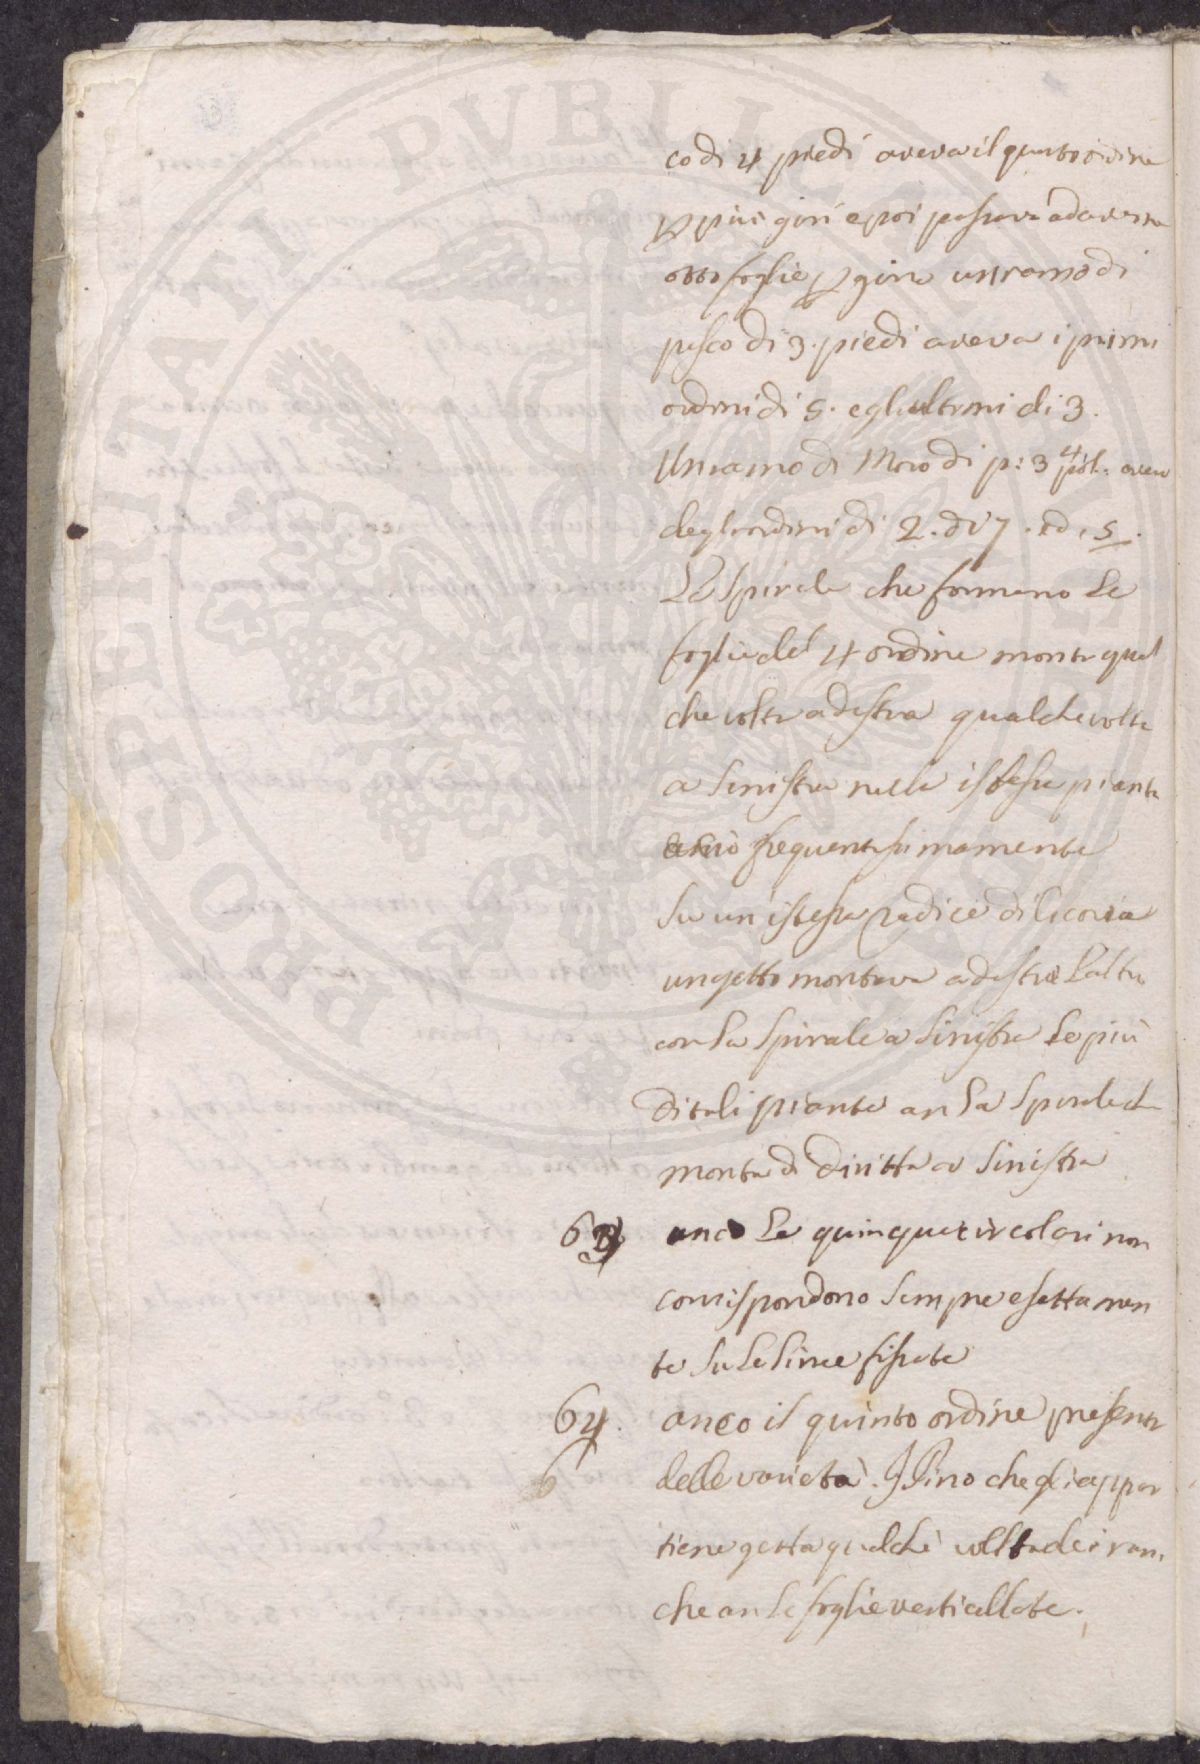 PROSPERITATI PVBLICAE
co di 4 piedi aveva il quarto ordine
p più giri e poi passava ad avere
otto foglie p giro un ramo di
pesco di 3. piedi aveva i primi
ordini di 5. e gli ultimi di 3.
Un ramo di Moro di p: 3 4 pol: avea
degli ordini di 2. di 7. ed. 5.
La spirale che formano le
foglie del 4 ordine monta qual
che volta a destra qualche volta
a sinistra nella istessa pianta
e ciò frequentissimamente
su un istessa radice di licoria
un getto montava a destra e l'altro
con la spirale a sinistra le più
di tali piante an la spirale che
monta di diritta a sinistra
63 anco le quinque circolari non
corrispondono sempre esattamen
te su le linee fissate
64. anco il quinto ordine presenta
6 delle varietà. Il Pino che gli appar
tiene getta qualche volta dei rami
che an le foglie verticillate.